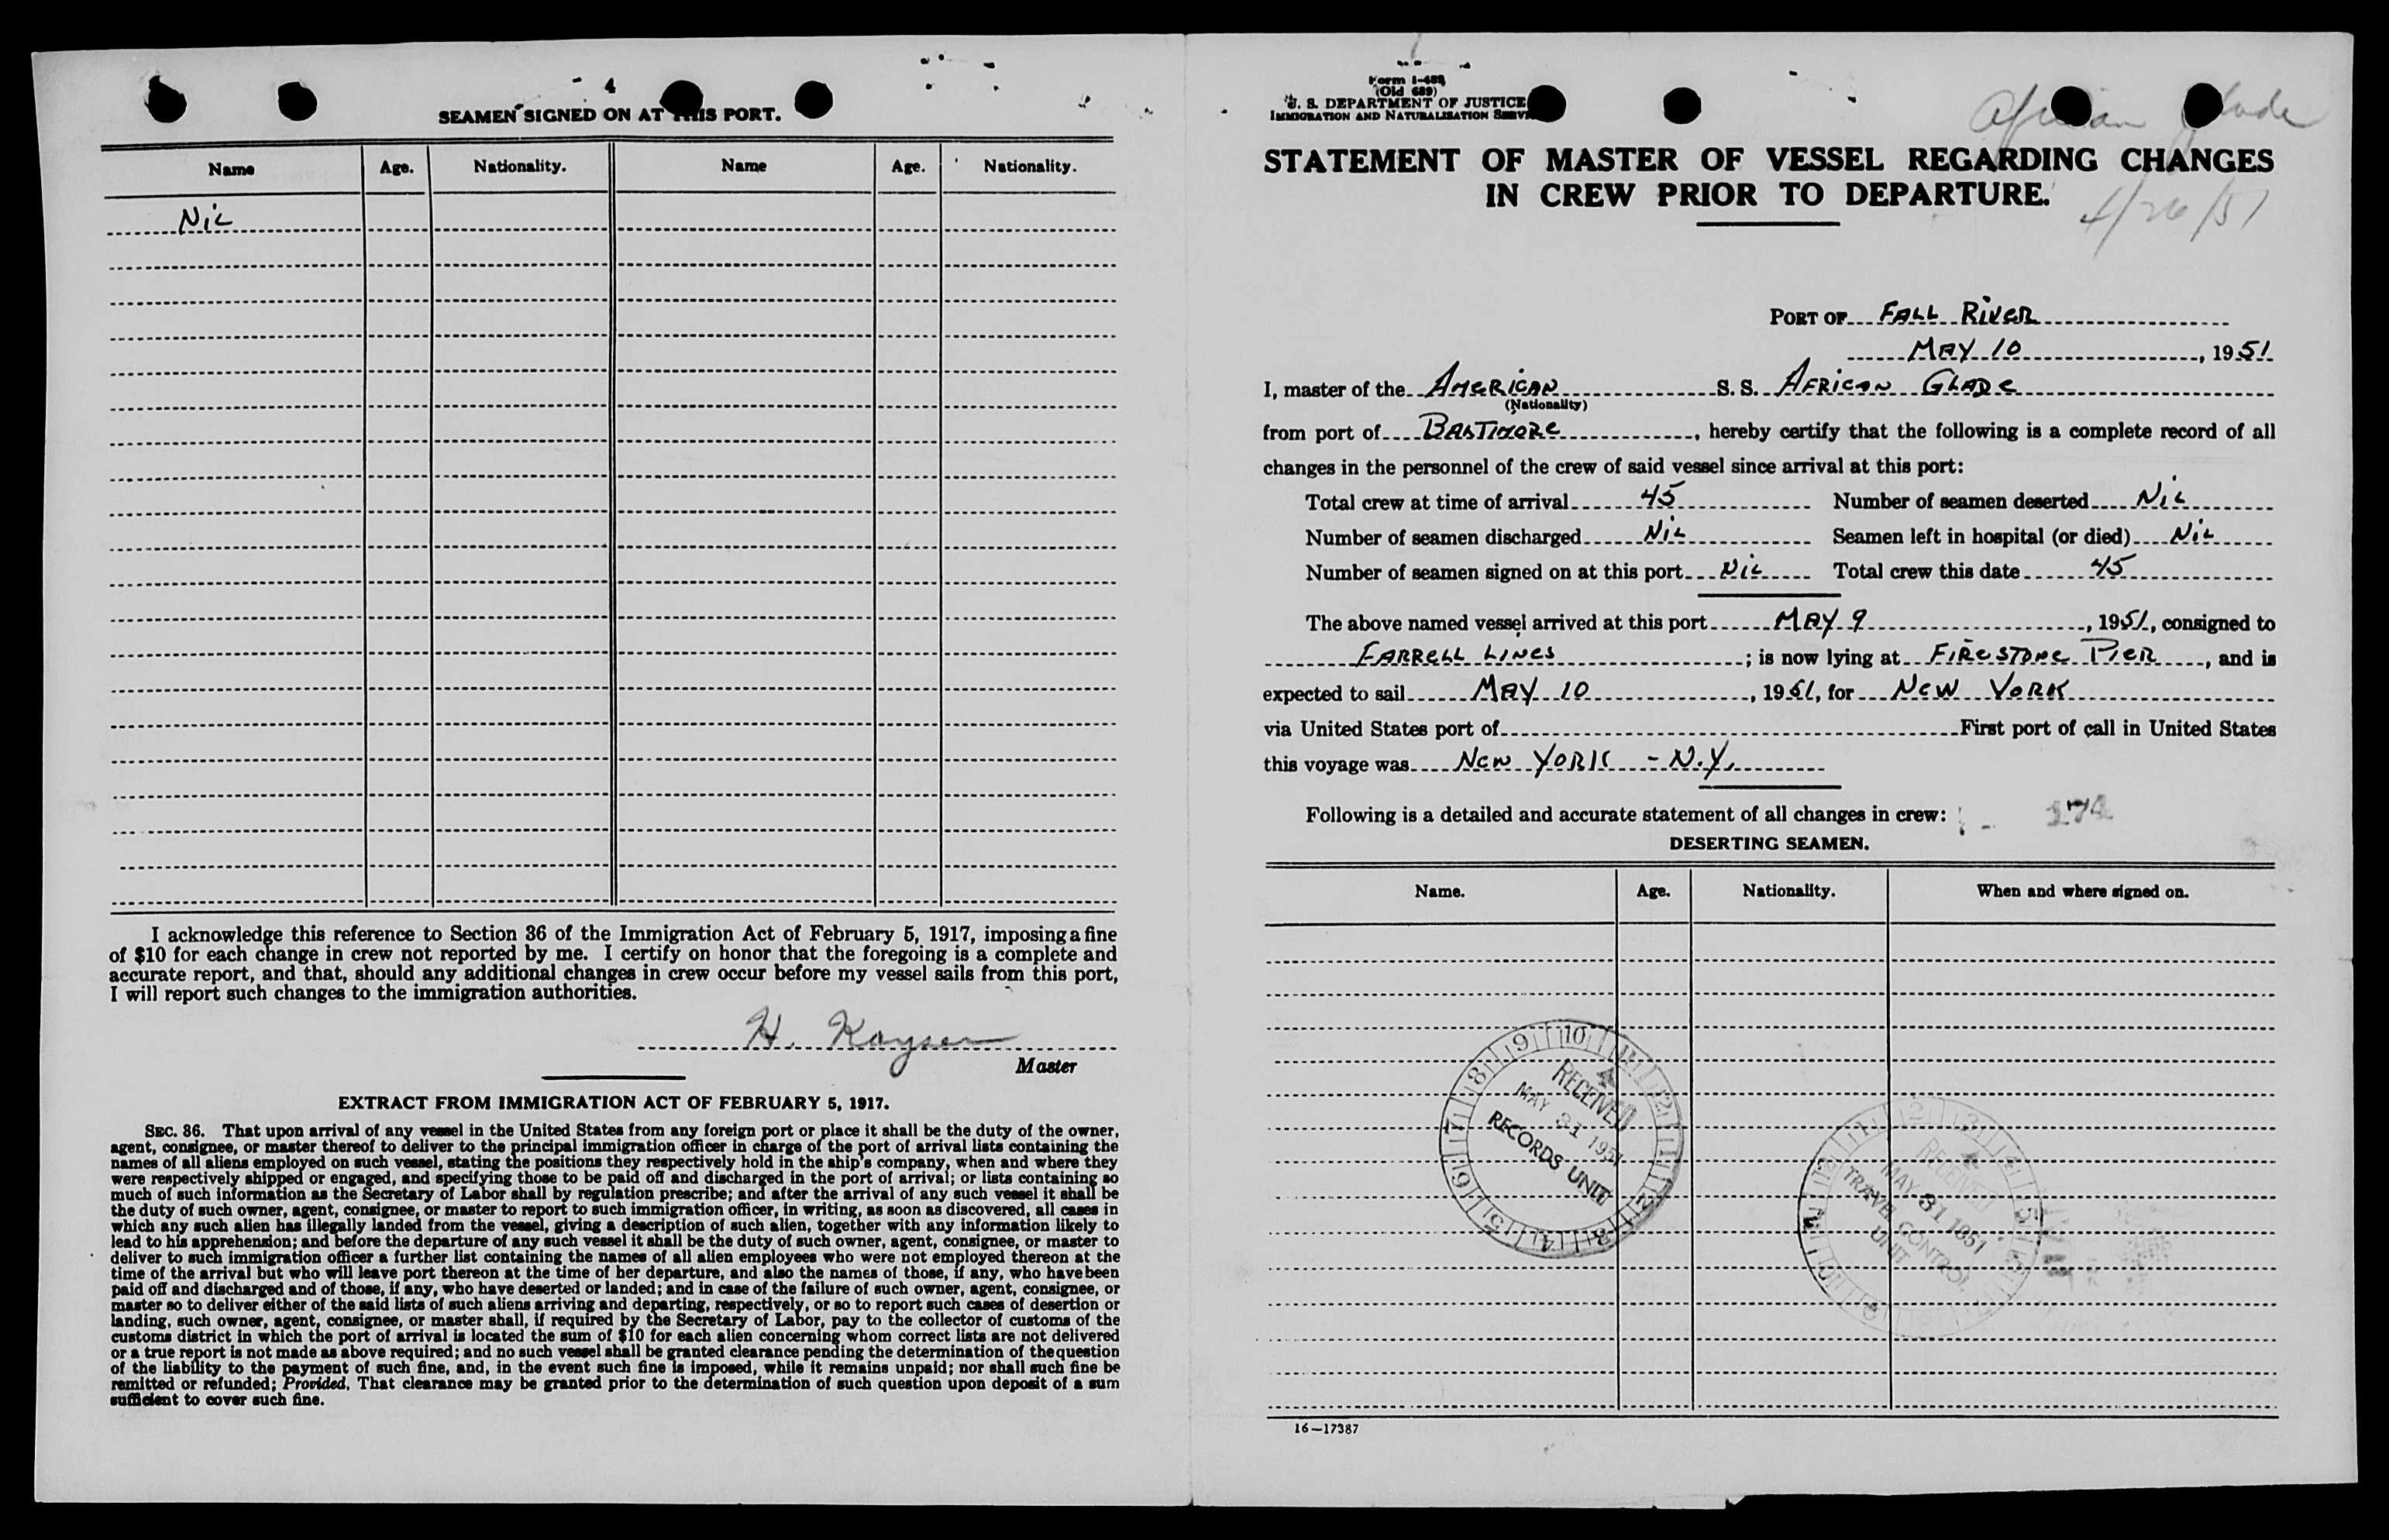 4
SEAMEN SIGNED ON AT THIS PORT.
Name Age. Nationality. Name Age. Nationality.
Nil
I acknowledge this reference to Section 36 of the Immigration Act of February 5, 1917, imposing a fine
of $10 for each change in crew not reported by me. I certify on honor that the foregoing is a complete and
accurate report, and that, should any additional changes in crew occur before my vessel sails from this port,
I will report such changes to the immigration authorities.
H. Kayser
Master
EXTRACT FROM IMMIGRATION ACT OF FEBRUARY 5, 1917.
SEC. 36. That upon arrival of any vessel in the United States from any foreign port or place it shall be the duty of the owner,
agent, consignee, or master thereof to deliver to the principal immigration officer in charge of the port of arrival lists containing the
names of all aliens employed on such vessel, stating the positions they respectively hold in the ship's company, when and where they
were respectively shipped or engaged, and specifying those to be paid off and discharged in the port of arrival; or lists containing so
much of such information as the Secretary of Labor shall by regulation prescribe; and after the arrival of any such vessel it shall be
the duty of such owner, agent, consignee, or master to report to such immigration officer, in writing, as soon as discovered, all cases in
which any such alien has illegally landed from the vessel, giving a description of such alien, together with any information likely to
lead to his apprehension; and before the departure of any such vessel it shall be the duty of such owner, agent, consignee, or master to
deliver to such immigration officer a further list containing the names of all alien employees who were not employed thereon at the
time of the arrival but who will leave port thereon at the time of her departure, and also the names of those, if any, who have been
paid off and discharged and of those, if any, who have deserted or landed; and in case of the failure of such owner, agent, consignee, or
master so to deliver either of the said lists of such aliens arriving and departing, respectively, or so to report such cases of desertion or
landing, such owner, agent, consignee, or master shall, if required by the Secretary of Labor, pay to the collector of customs of the
customs district in which the port of arrival is located the sum of $10 for each alien concerning whom correct lists are not delivered
or a true report is not made as above required; and no such vessel shall be granted clearance pending the determination of the question
of the liability to the payment of such fine, and, in the event such fine is imposed, while it remains unpaid; nor shall such fine be
remitted or refunded; Provided, That clearance may be granted prior to the determination of such question upon deposit of a sum
sufficient to cover such fine.
Form I-489
(Old 689)
U. S. DEPARTMENT OF JUSTICE
IMMIGRATION AND NATURALIZATION SERVICE
African Glade
STATEMENT OF MASTER OF VESSEL REGARDING CHANGES
IN CREW PRIOR TO DEPARTURE.
4/26/51
PORT OF FALL RIVER
MAY 10, 1951
I, master of the AMERICAN S. S. AFRICAN GLADE
(Nationality)
from port of BALTIMORE, hereby certify that the following is a complete record of all
changes in the personnel of the crew of said vessel since arrival at this port:
Total crew at time of arrival 45 Number of seamen deserted Nil
Number of seamen discharged Nil Seamen left in hospital (or died) Nil
Number of seamen signed on at this port Nil Total crew this date 45
The above named vessel arrived at this port MAY 9, 1951, consigned to
FARRELL LINES; is now lying at FIRESTONE PIER, and is
expected to sail MAY 10, 1951, for NEW YORK
via United States port of First port of call in United States
this voyage was NEW YORK - N.Y.
Following is a detailed and accurate statement of all changes in crew: 174
DESERTING SEAMEN.
Name. Age. Nationality. When and where signed on.
RECEIVED
MAY 31 1951
RECORDS UNIT
RECEIVED
MAY 31 1951
TRAVEL CONTROL
UNIT
16—17387